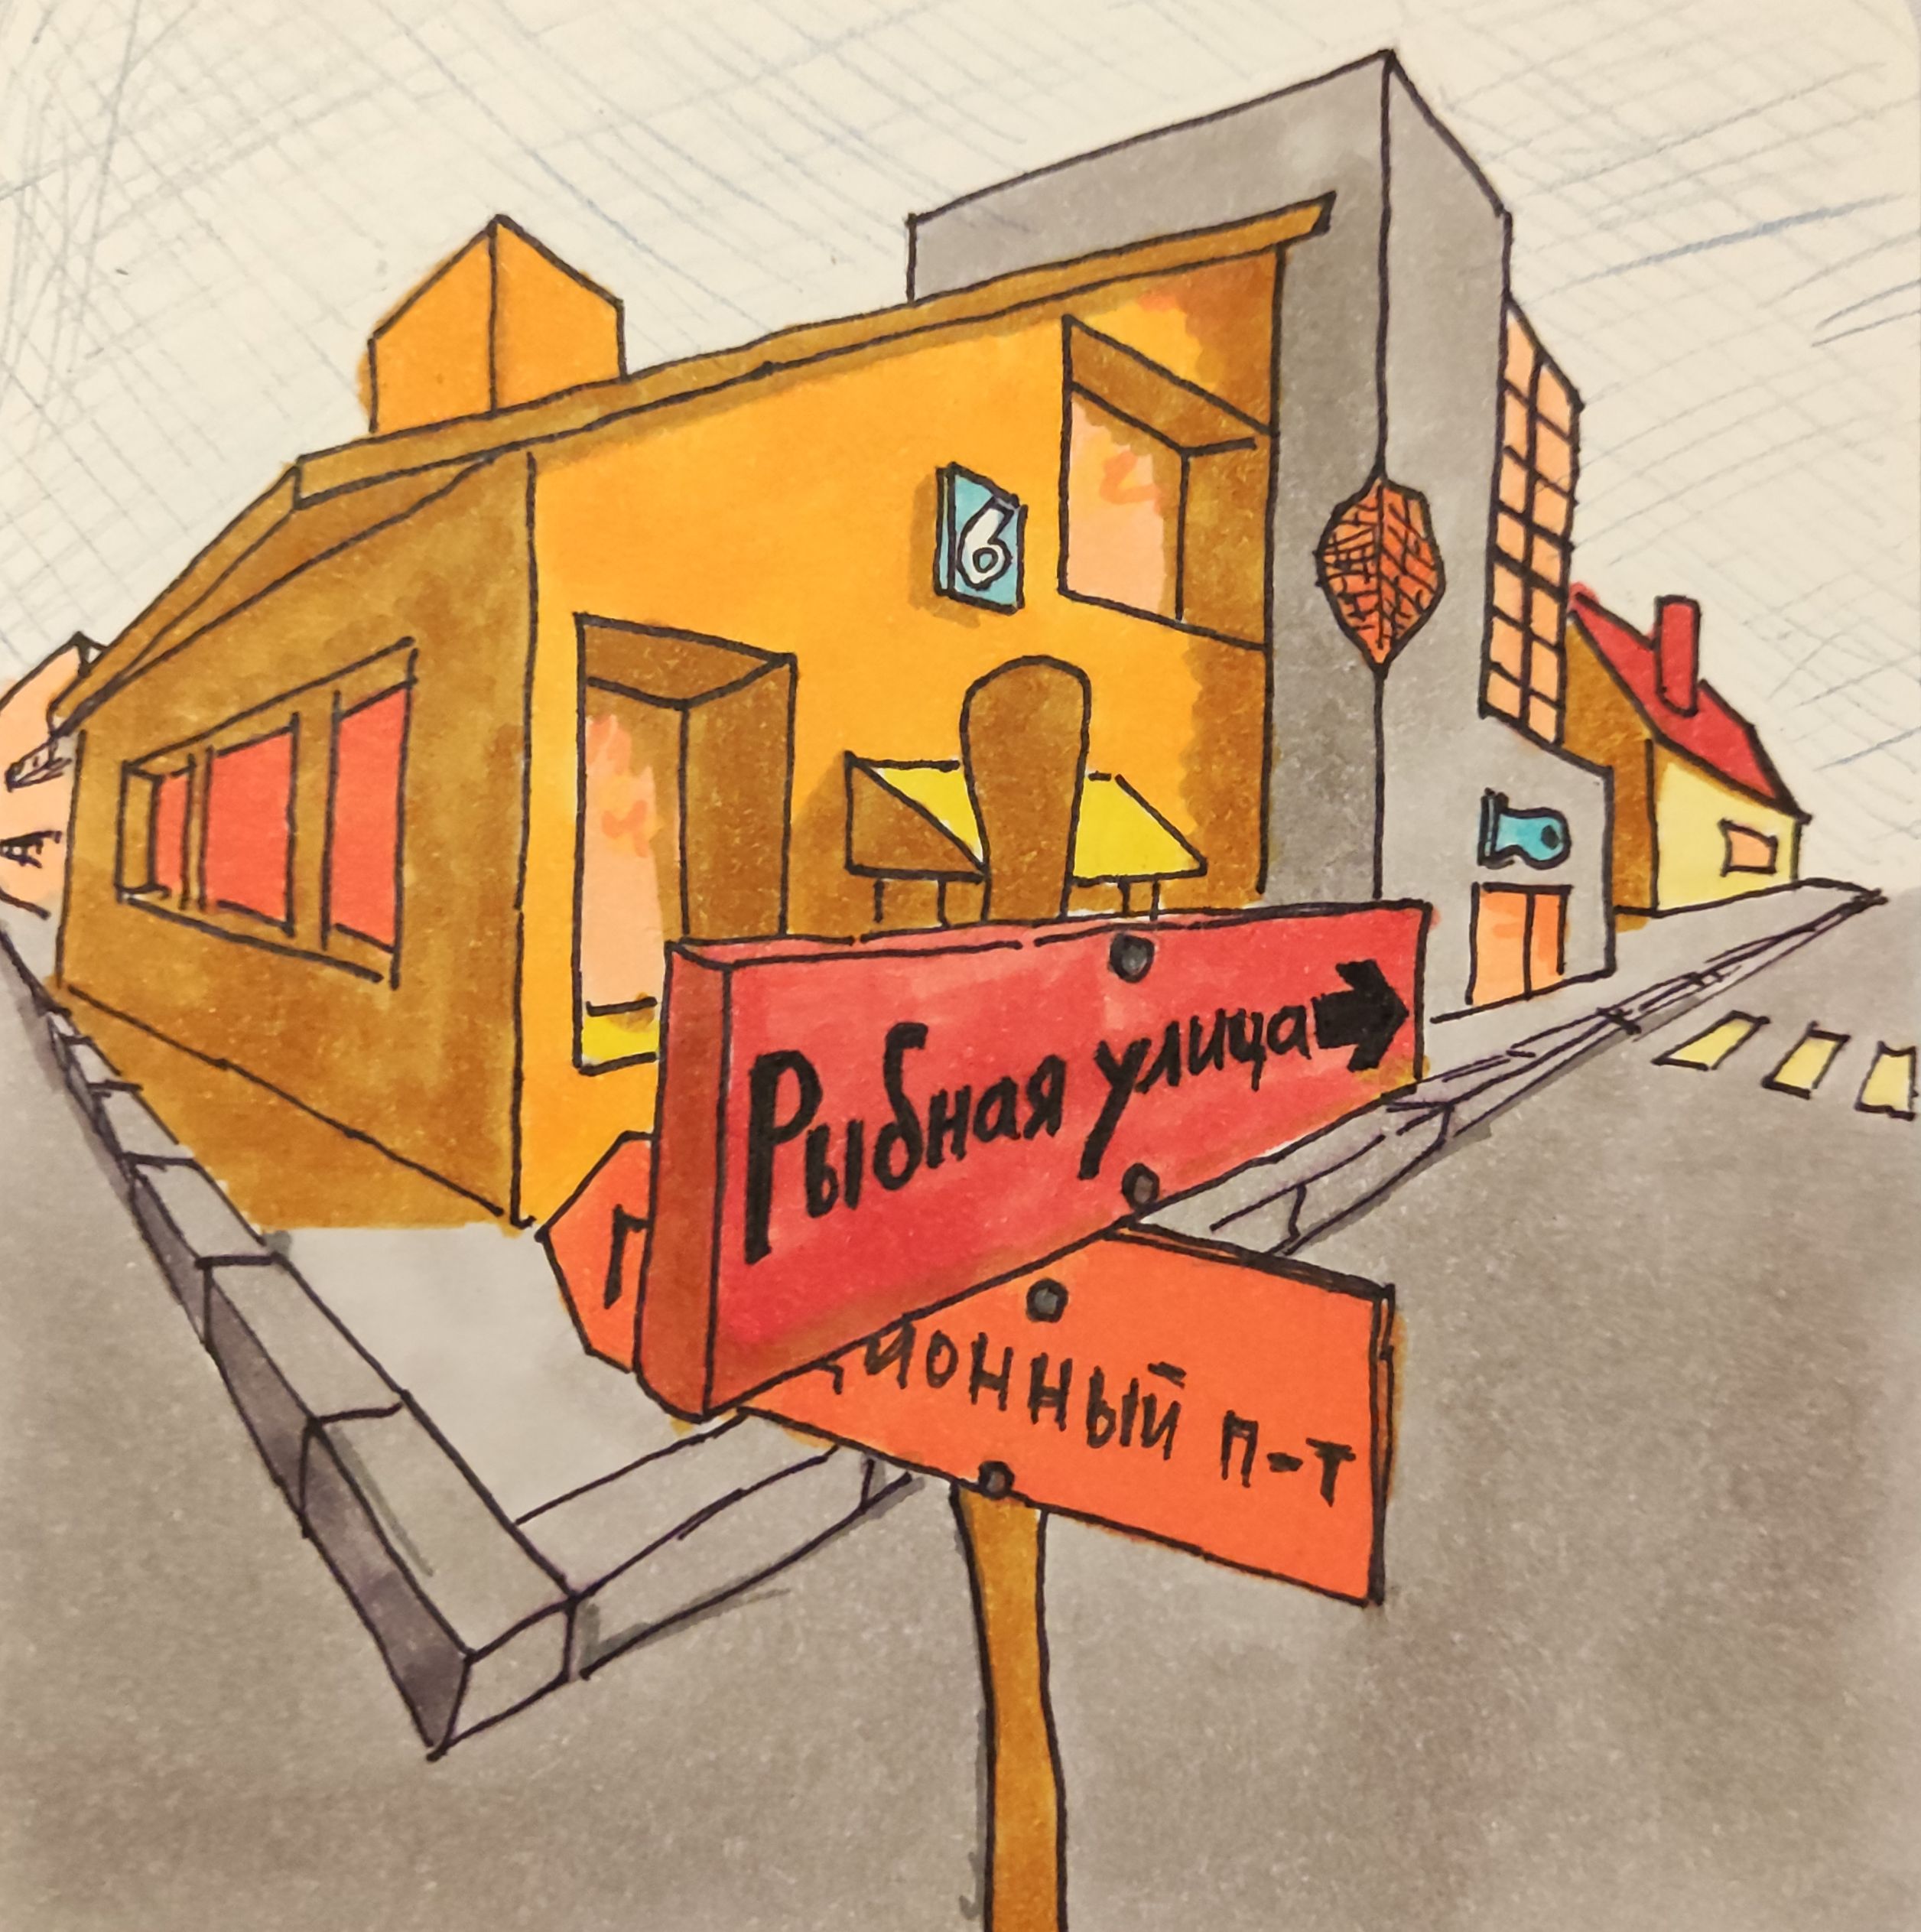 6
Рыбная улица
ионный п-т